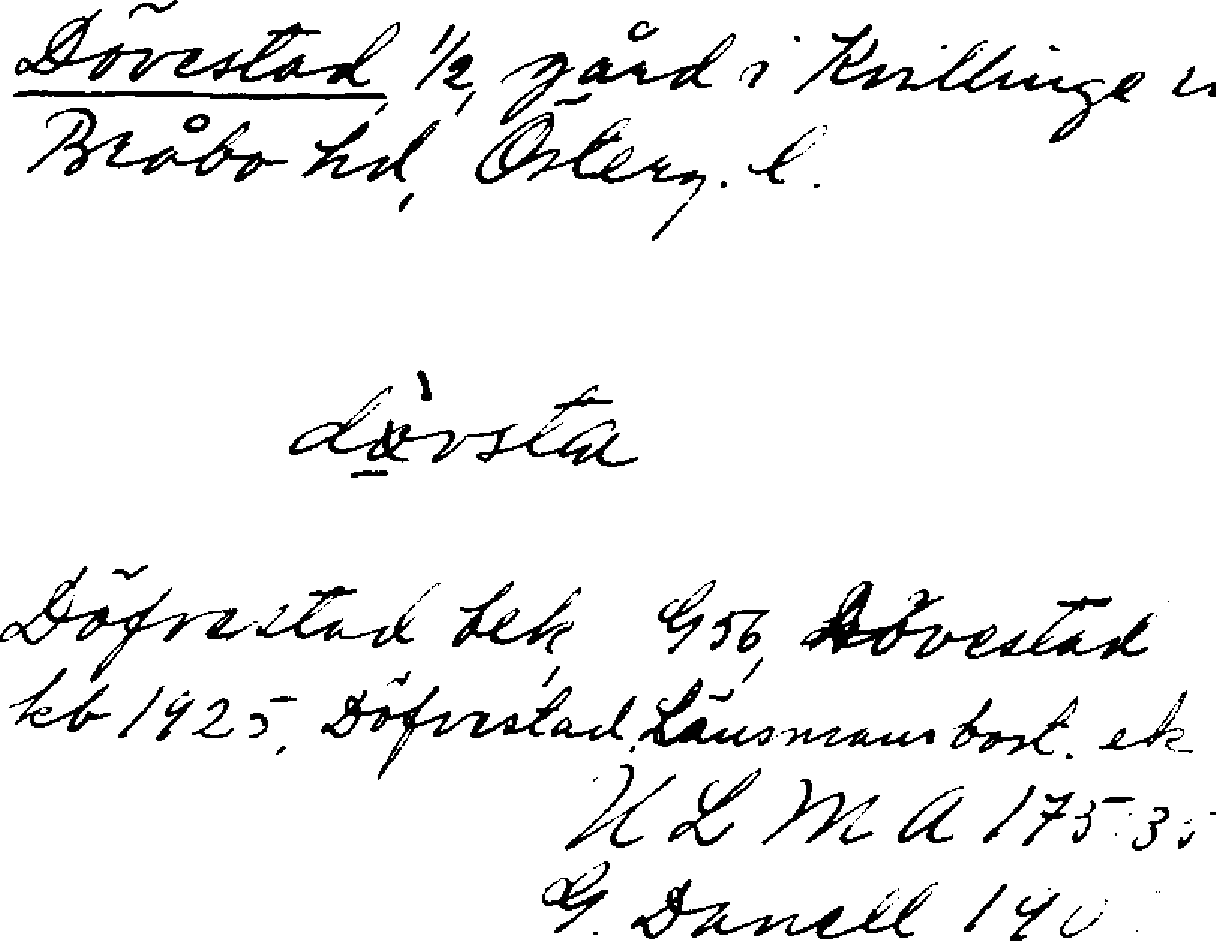 Dövestad, 1/2, gård i Kvillinge
Bråbo hd, Österg. l.
dövsta
Döfvestad bek, G56, Dövestad
kb 1925, Döfvestad, Länsmansbost. ek
ULMA 175:35
G. Danell